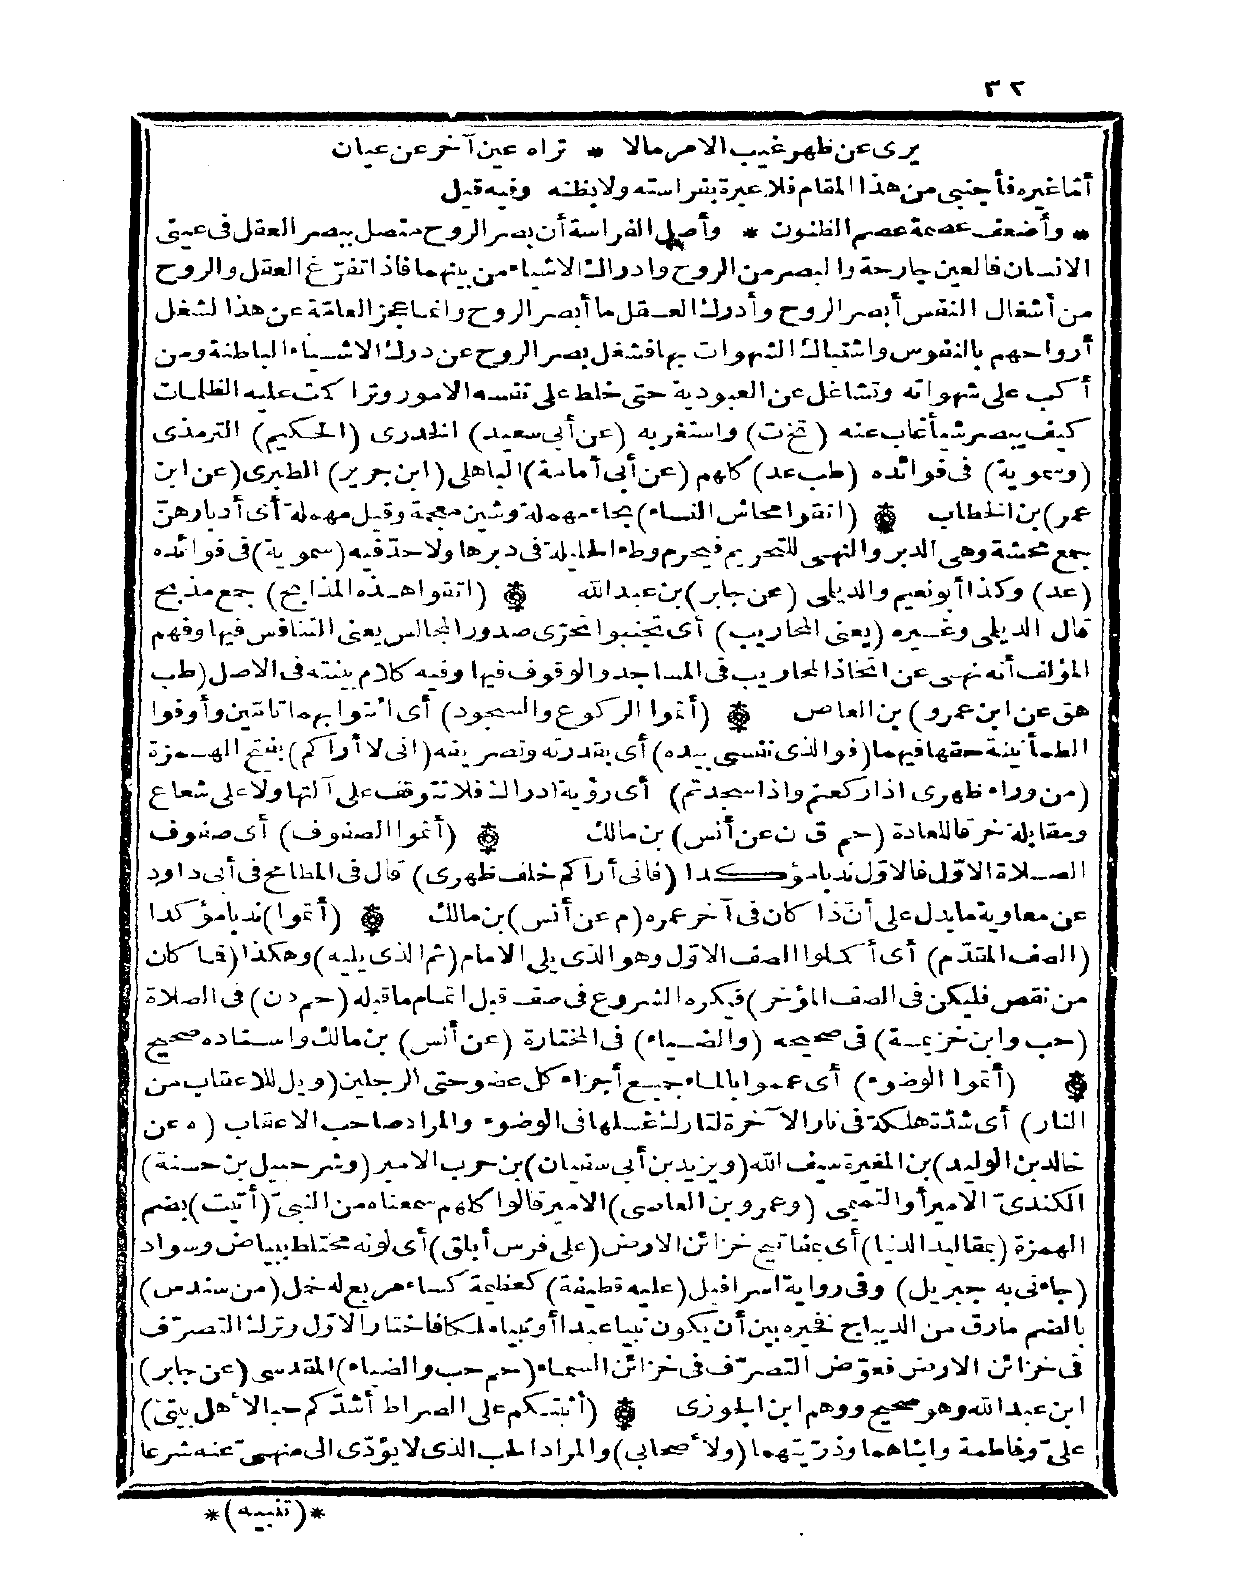 ٣٢
يرى عن ظهر غيب الامر مالا * تراه عين آخر عن عيان
أمّا غيره فأجنبى من هذا المقام فلا عبرة بفراسته ولا بظنه وفيه قيل
* وأضعف عصمة عصم الظنون * وأصل الفراسة أن بصر الروح متصل ببصر العقل فى عينى
الانسان فالعين جارحة والبصر من الروح وادراك الاشياء من بينهما فاذا تفرّغ العقل والروح
من أشغال النفس أبصر الروح وأدرك العقل ما أبصر الروح وانما عجز العامّة عن هذا لشغل
أرواحهم بالنفوس واشتباك الشهوات بها فشغل بصر الروح عن درك الاشياء الباطنة ومن
أكب على شهواته وتشاغل عن العبودية حتى خلط على نفسه الامور وتراكمت عليه الظلمات
كيف يبصر شيأ غاب عنه (تخ ت) واستغربه (عن أبى سعيد) الخدرى (الحكيم) الترمذى
(وسموية) فى فوائده (طب عد) كلهم (عن أبى أمامة) الباهلى (ابن جرير) الطبرى (عن ابن
عمر) بن الخطاب (اتقوا محاش النساء) بحاء مهملة وشين معجمة وقيل مهملة أى أدبارهنّ
جمع محشة وهى الدبر والنهى للتحريم فيحرم وطء الحليلة فى دبرها ولا حدّ فيه (سموية) فى فوائده
(عد) وكذا أبو نعيم والديلى (عن جابر) بن عبد الله (اتقوا هذه المذابح) جمع مذبح
قال الديلى وغيره (يعنى المحاريب) أى تجنبوا تحرّى صدور المجالس يعنى التنافس فيها وفهم
المؤلف أنه نهى عن اتخاذ المحاريب فى المساجد والوقوف فيها وفيه كلام بينته فى الاصل (طب
هق عن ابن عمرو) بن العاص (أتموا الركوع والسجود) أى ائتوا بهما تاتين وأوفوا
الطمأنينة حقها فيهما (فوالذى نفسى بيده) أى بقدرته وتصريفه (انى لا أراكم) بفتح الهمزة
(من وراء ظهرى اذا ركعتم واذا سجدتم) أى رؤية ادراك فلا تتوقف على آلتها ولا على شعاع
ومقابلة خرقا للعادة (حم ق ن عن أنس) بن مالك (أتموا الصفوف) أى صفوف
الصلاة الاوّل فالاوّل ندبا مؤكدا (فانى أراكم خلف ظهرى) قال فى المطامح فى أبى داود
عن معاوية ما يدل على أنّ ذا كان فى آخر عمره (م عن أنس) بن مالك (أتموا) ندبا مؤكدا
(الصف المقدّم) أى أكملوا الصف الاوّل وهو الذى يلى الامام (ثم الذى يليه) وهكذا (فما كان
من نقص فليكن فى الصف المؤخر) فيكره الشروع فى صف قبل اتمام ما قبله (حم د ن) فى الصلاة
(حب وابن خزيمة) فى صحيحه (والضياء) فى المختارة (عن أنس) بن مالك واسناده صحيح
(أتموا الوضوء) أى عمموا بالماء جميع أجزاء كل عضو حتى الرجلين (ويل للاعقاب من
النار) أى شدّة هلكة فى نار الآخرة لتارك غسلها فى الوضوء والمراد صاحب الاعقاب (ه عن
خالد بن الوليد) بن المغيرة سيف الله (ويزيد بن أبى سفيان) بن حرب الامير (وشرحبيل بن حسنة)
الكندىّ الامير أو التميمى (وعمرو بن العاصى) الامير قالوا كلهم سمعناه من النبىّ (أتيت) بضم
الهمزة (بمقاليد الدنيا) أى بمفاتيح خزائن الارض (على فرس أبلق) أى لونه مختلط ببياض وسواد
(جاءنى به جبريل) وفى رواية اسرافيل (عليه قطيفة) كعظيمة كساء مربع له خمل (من سندس)
بالضم مارق من الديباج فخيره بين أن يكون نبيا عبدا أو نبيا ملكا فاختار الاوّل وترك التصرّف
فى خزائن الارض فعوّض التصرّف فى خزائن السماء (حم حب والضياء) المقدسى (عن جابر)
ابن عبد الله وهو صحيح ووهم ابن الجوزى (أثبتكم على الصراط أشدّكم حبا لأهل بيتى)
علىّ وفاطمة وابناهما وذرّيتهما (ولأصحابى) والمراد الحب الذى لا يؤدّى الى منهىّ عنه شرعا
*(تنبيه)*